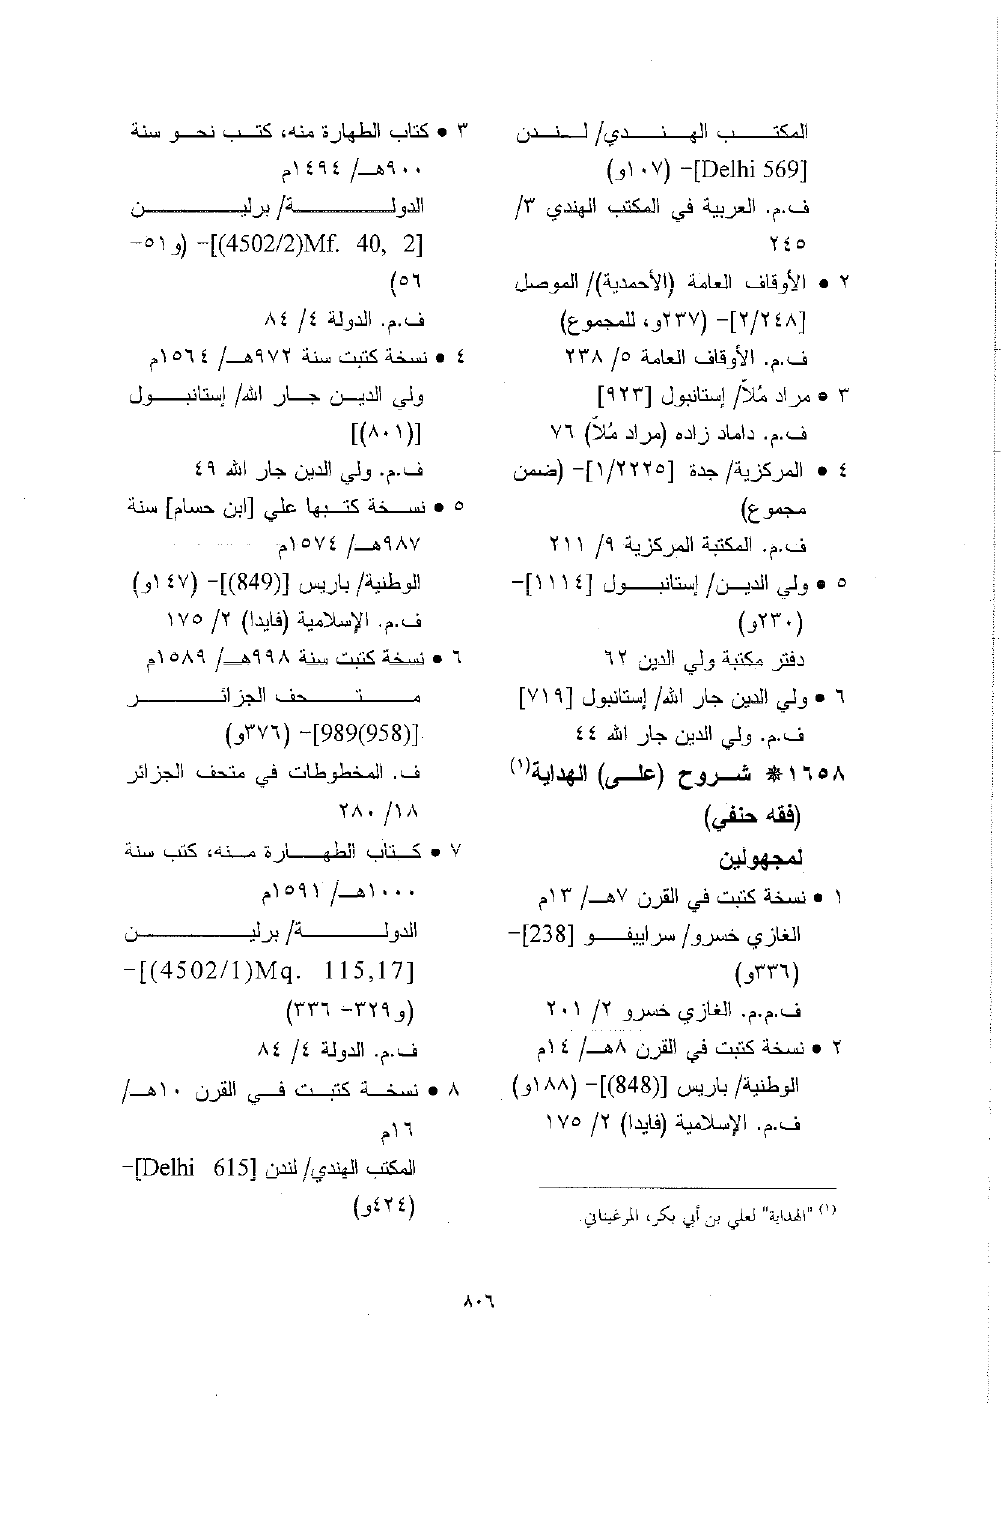 المكتب الهندي/ لندن
[Delhi 569]- (١٠٧و)
ف.م. العربية في المكتب الهندي ٣/
٢٤٥
٢ • الأوقاف العامة (الأحمدية)/ الموصل
[٢/٢٤٨]- (٢٣٧و، للمجموع)
ف.م. الأوقاف العامة ٥/ ٢٣٨
٣ • مراد مُلاّ/ إستانبول [٩٢٣]
ف.م. داماد زاده (مراد مُلاّ) ٧٦
٤ • المركزية/ جدة [١/٢٢٢٥]- (ضمن
مجموع)
ف.م. المكتبة المركزية ٩/ ٢١١
٥ • ولي الدين/ إستانبول [١١١٤]-
(٢٣٠و)
دفتر مكتبة ولي الدين ٦٢
٦ • ولي الدين جار الله/ إستانبول [٧١٩]
ف.م. ولي الدين جار الله ٤٤
١٦٥٨ * شروح (على) الهداية(١)
(فقه حنفي)
لمجهولين
١ • نسخة كتبت في القرن ٧هـ/ ١٣م
الغازي خسرو/ سراييفو [238]-
(٣٣٦و)
ف.م.م. الغازي خسرو ٢/ ٢٠١
٢ • نسخة كتبت في القرن ٨هـ/ ١٤م
الوطنية/ باريس [(848)]- (١٨٨و)
ف.م. الإسلامية (فايدا) ٢/ ١٧٥
(١) "الهداية" لعلي بن أبي بكر، المرغيناني.
٣ • كتاب الطهارة منه، كتب نحو سنة
٩٠٠هـ/ ١٤٩٤م
الدولة/ برلين
[Mf. 40, 2(4502/2)]- (و٥١-
٥٦)
ف.م. الدولة ٤/ ٨٤
٤ • نسخة كتبت سنة ٩٧٢هـ/ ١٥٦٤م
ولي الدين جار الله/ إستانبول
[(٨٠١)]
ف.م. ولي الدين جار الله ٤٩
٥ • نسخة كتبها علي [ابن حسام] سنة
٩٨٧هـ/ ١٥٧٤م
الوطنية/ باريس [(849)]- (١٤٧و)
ف.م. الإسلامية (فايدا) ٢/ ١٧٥
٦ • نسخة كتبت سنة ٩٩٨هـ/ ١٥٨٩م
متحف الجزائر
[989(958)]- (٣٧٦و)
ف. المخطوطات في متحف الجزائر
١٨/ ٢٨٠
٧ • كتاب الطهارة منه، كتب سنة
١٠٠٠هـ/ ١٥٩١م
الدولة/ برلين
[Mq. 115,17(4502/1)]-
(و٣٢٩- ٣٣٦)
ف.م. الدولة ٤/ ٨٤
٨ • نسخة كتبت في القرن ١٠هـ/
١٦م
المكتب الهندي/ لندن [Delhi 615]-
(٤٢٤و)
٨٠٦